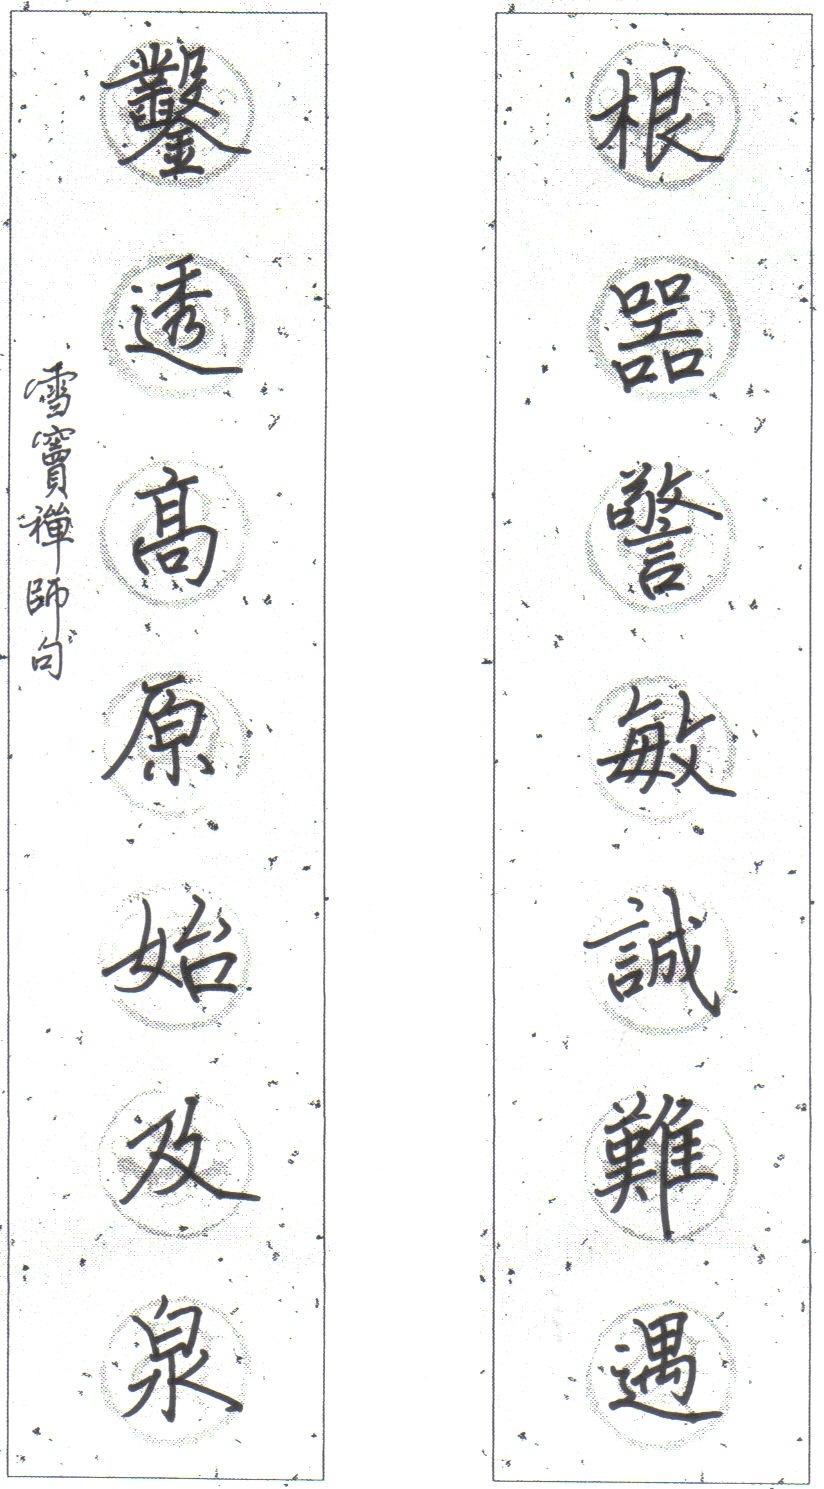 根器警敏誠難遇
鑿透高原始及泉
雪竇禪師句